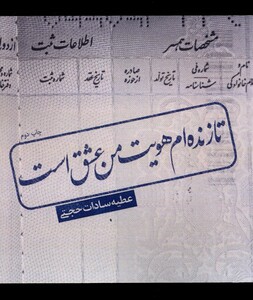 مشخصات همسر
اطلاعات ثبت
ازدوا
نام و
نام خانوادگی
شماره ملی
شناسنامه
تاریخ تولد
صادره
از حوزه
تاریخ عقد
شماره ثبت
چاپ دوم
تا زنده‌ام هویت من عشق است
عطیه سادات حجتی